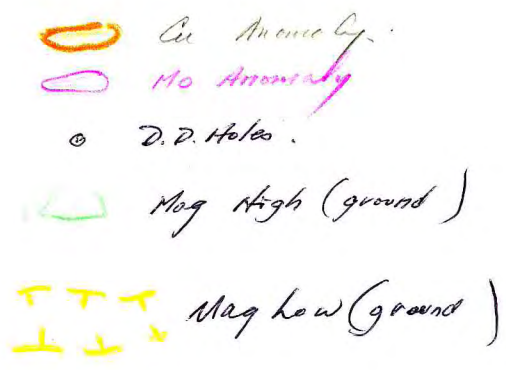 Cu Anomaly.
Mo Anomaly
D.D. Holes.
Mag High (ground)
Mag Low (ground)